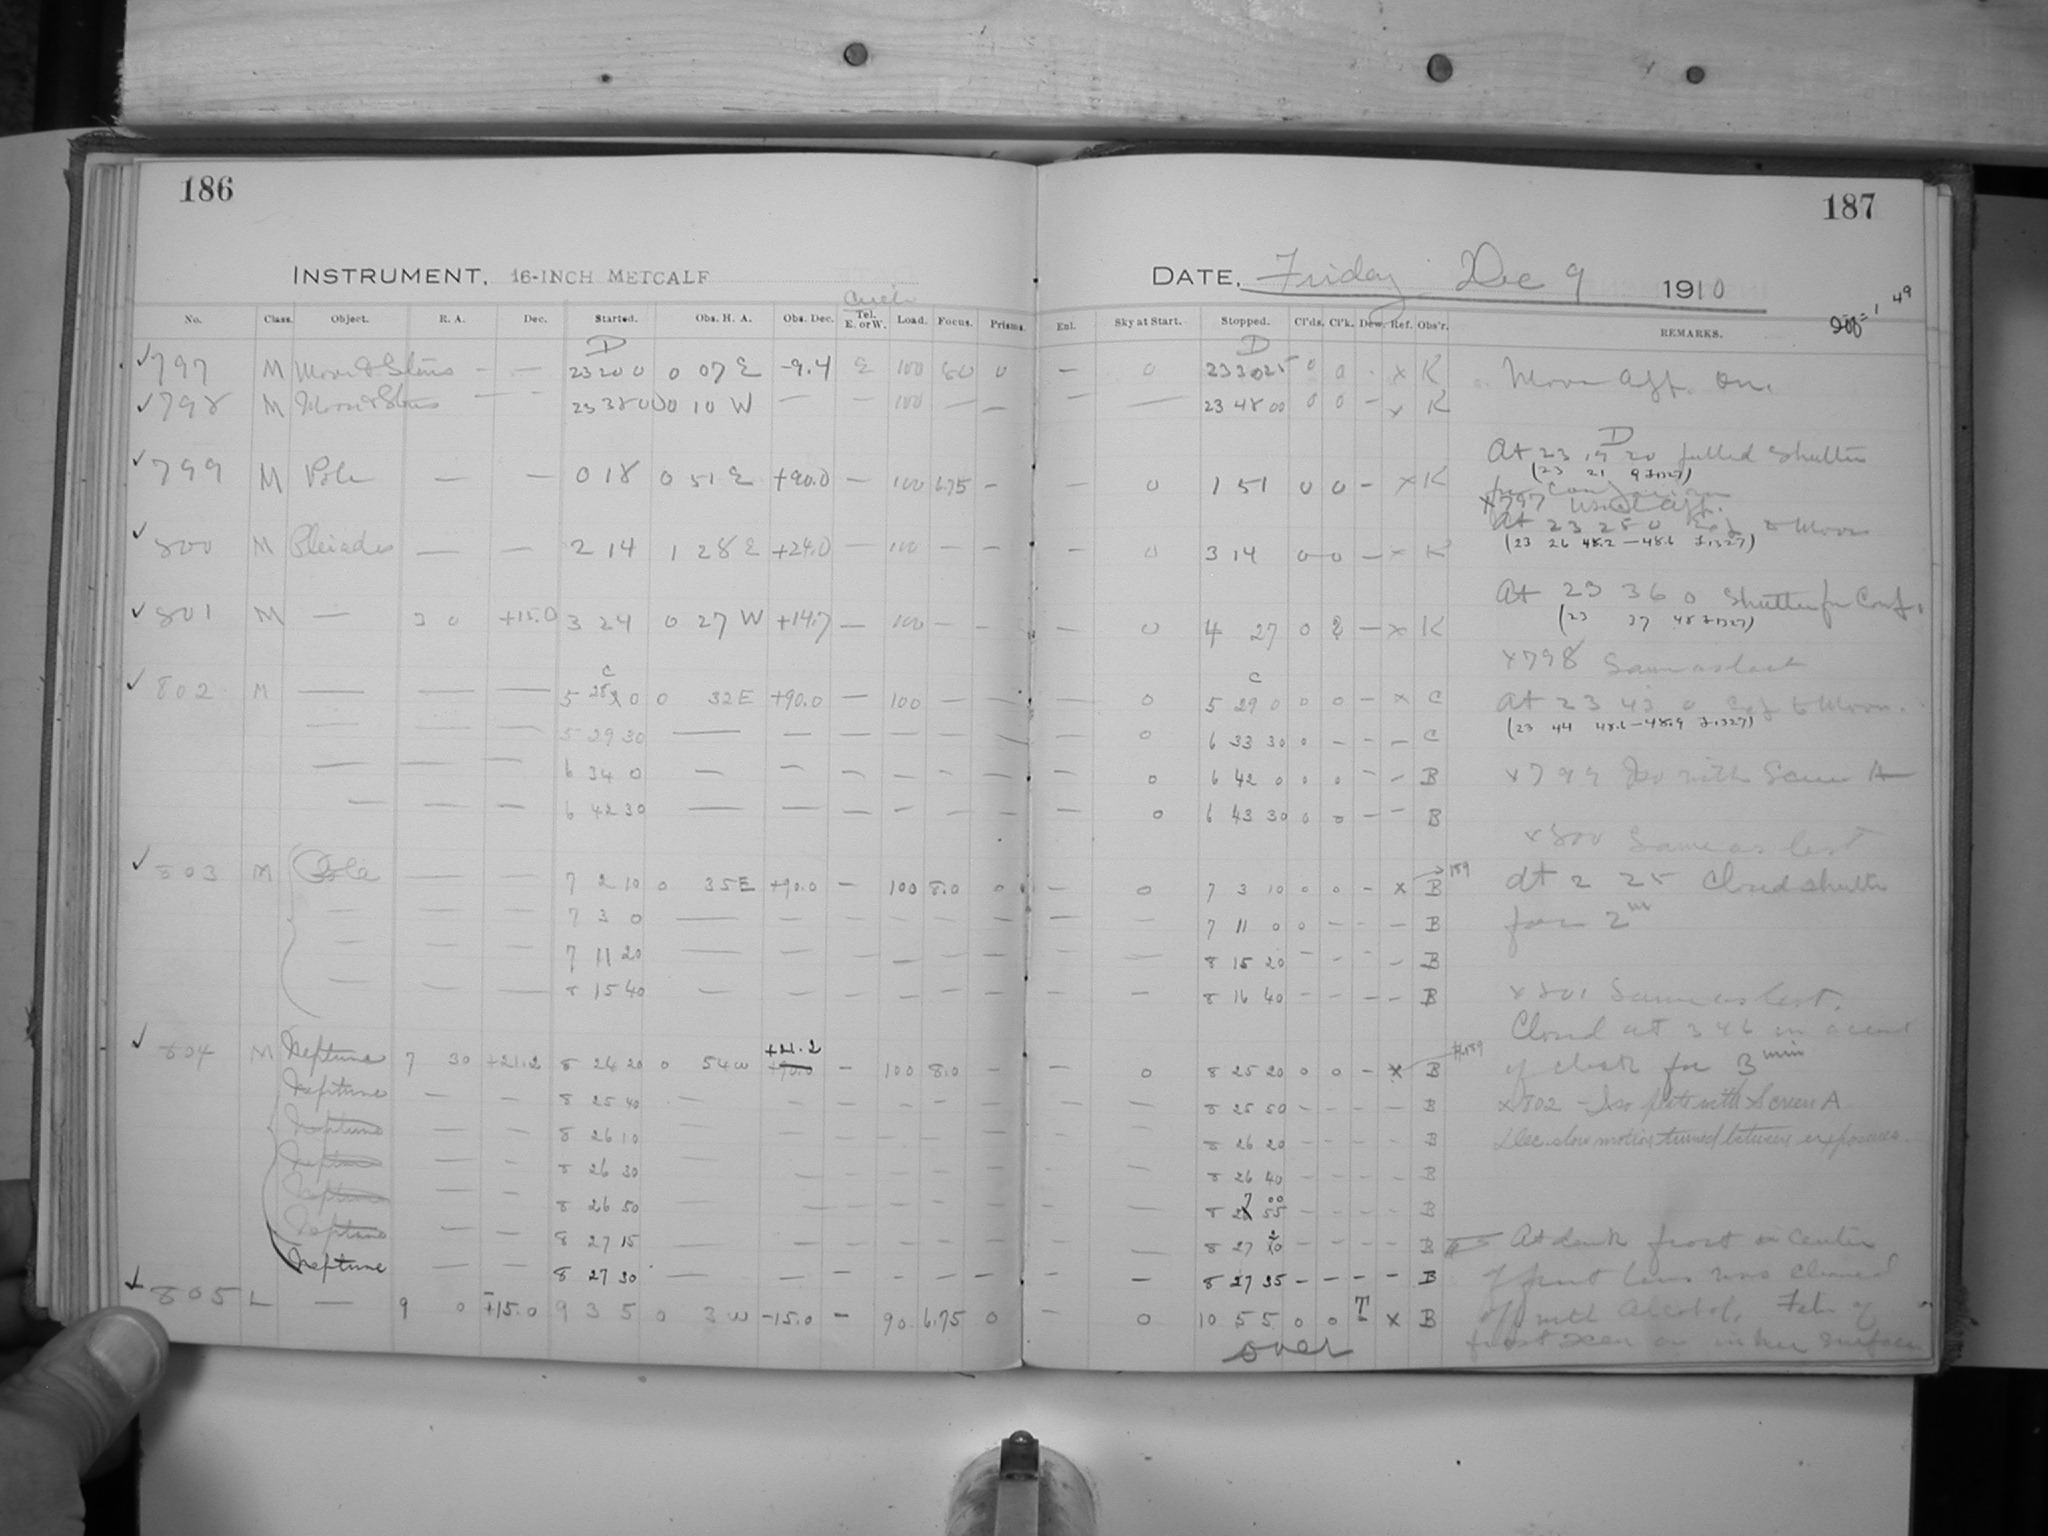 186
187
INSTRUMENT, 16-INCH METCALF
DATE, Friday Dec 9 1910
No. Class. Object. R. A. Dec. Started. Obs. H. A. Obs. Dec. Tel. E. or W. Load. Focus. Prisms. Enl. Sky at Start. Stopped. Cl'ds. Cl'k. Dew. Ref. Obs'r. REMARKS.
✓797 M Moon & Stars — — 23 20 0 0 07 E -9.4 E 100 60 0 — 0 23 30 25 0 0 - x K
Moon app. on.
✓798 M Moon & Stars — — 23 38 0 0 10 W — — 100 — — — — 23 48 00 0 0 - x K
At 23 19 20 pulled Shutter
(23 21 9 J1327)
✓799 M Pole — — 0 18 0 51 E +90.0 — 100 6.75 — — 0 1 51 0 0 - x K
x797
At 23 25 0 to Moon
(23 26 48.2 — 48.6 J1327)
✓800 M Pleiades — — 2 14 1 28 E +24.0 — 100 — — — 0 3 14 0 0 — x K
At 23 36 0 Shutter for Conf.
(23 37 48 J1327)
✓801 M — 3 0 +15.0 3 24 0 27 W +14.7 — 100 — — 0 4 27 0 2 — x K
x798 Same as last
✓802 M — — — 5 28 0 0 32 E +90.0 — 100 — — — 0 5 29 0 0 0 - x C
At 23 43 0 to Moon.
(23 44 48.6 — 48.9 J1327)
— — — 5 29 30 — — — — — — — 0 6 33 30 0 - - - C
— — — 6 34 0 — — — — — — — 0 6 42 0 0 0 - - B
x799 Iso with Screen A
— — — 6 42 30 — — — — — — — 0 6 43 30 0 0 - - B
x800 Same as last
✓803 M Pole — — 7 2 10 0 35 E +90.0 — 100 8.0 0 — 0 7 3 10 0 0 - x B
→189
At 2 25 Closed shutter
— — — 7 3 0 — — — — — — — — 7 11 0 0 - - - B
for 2m
— — — 7 11 20 — — — — — — — — 8 15 20 - - - B
— — — 8 15 40 — — — — — — — — 8 16 40 - - - - B
x801 Same as last.
Closed at 3 46 in account
✓804 M Neptune 7 30 +21.2 8 24 20 0 54 W +21.2 — 100 8.0 — — 0 8 25 20 0 0 - x B
of clock for 3 min
Neptune — — 8 25 40 — — — — — — — — 8 25 50 - - - - B
x802 - Iso plate with Screen A
Neptune — — 8 26 10 — — — — — — — — 8 26 20 - - - - B
Dec. slow motion turned between exposures.
Neptune — — 8 26 30 — — — — — — — — 8 26 40 - - - - B
Neptune — — 8 26 50 — — — — — — — — 8 27 00 - - - - B
Neptune — — 8 27 15 — — — — — — — — 8 27 20 - - - - B
At dark frost in center
Neptune — — 8 27 30 — — — — — — — — 8 27 35 - - - - B
of front lens was cleaned
805 L — 9 0 +15.0 9 3 5 0 3 W -15.0 — 90 6.75 0 — 0 10 5 5 0 0 x B
off with Alcohol.
frost seen on inner surface
over